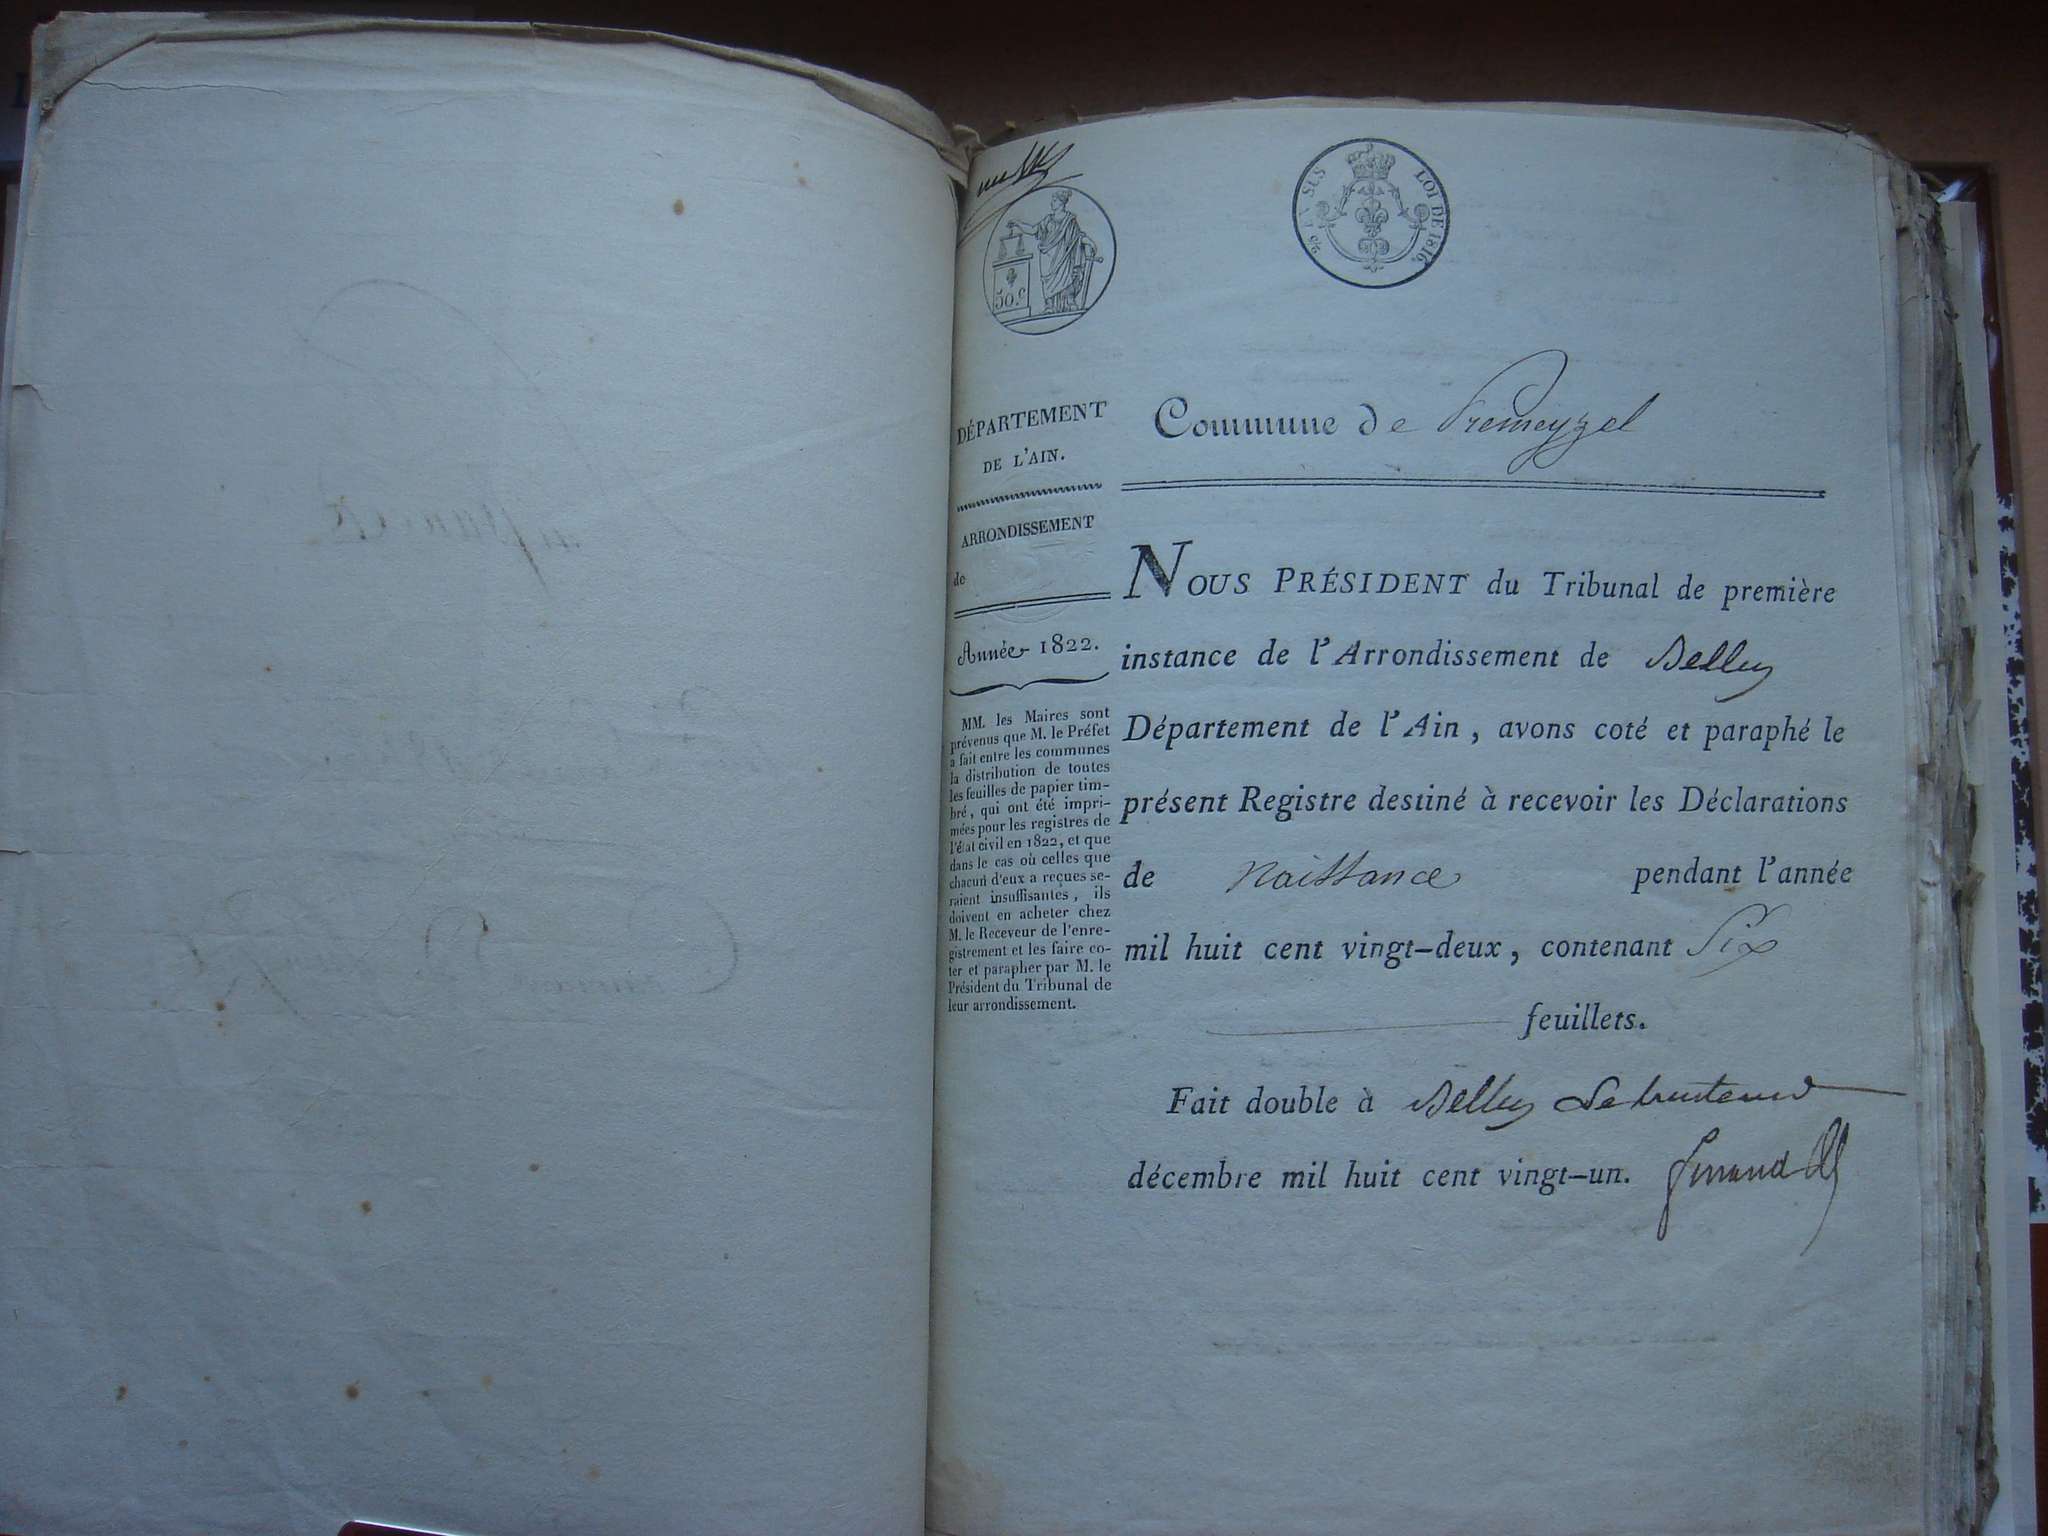 LOI DE 1816.
50.c
DÉPARTEMENT
DE L'AIN.
ARRONDISSEMENT
de
Année 1822.
MM. les Maires sont
prévenus que M. le Préfet
a fait entre les communes
la distribution de toutes
les feuilles de papier tim-
bré, qui ont été impri-
mées pour les registres de
l'état civil en 1822, et que
dans le cas où celles que
chacun d'eux a reçues se-
raient insuffisantes, ils
doivent en acheter chez
M. le Receveur de l'enre-
gistrement et les faire co-
ter et parapher par M. le
Président du Tribunal de
leur arrondissement.
Commune de Premeyzel
NOUS PRÉSIDENT du Tribunal de première
instance de l'Arrondissement de Belley
Département de l'Ain, avons coté et paraphé le
présent Registre destiné à recevoir les Déclarations
de Naissance pendant l'année
mil huit cent vingt-deux, contenant Six
feuillets.
Fait double à Belley Le
décembre mil huit cent vingt-un.